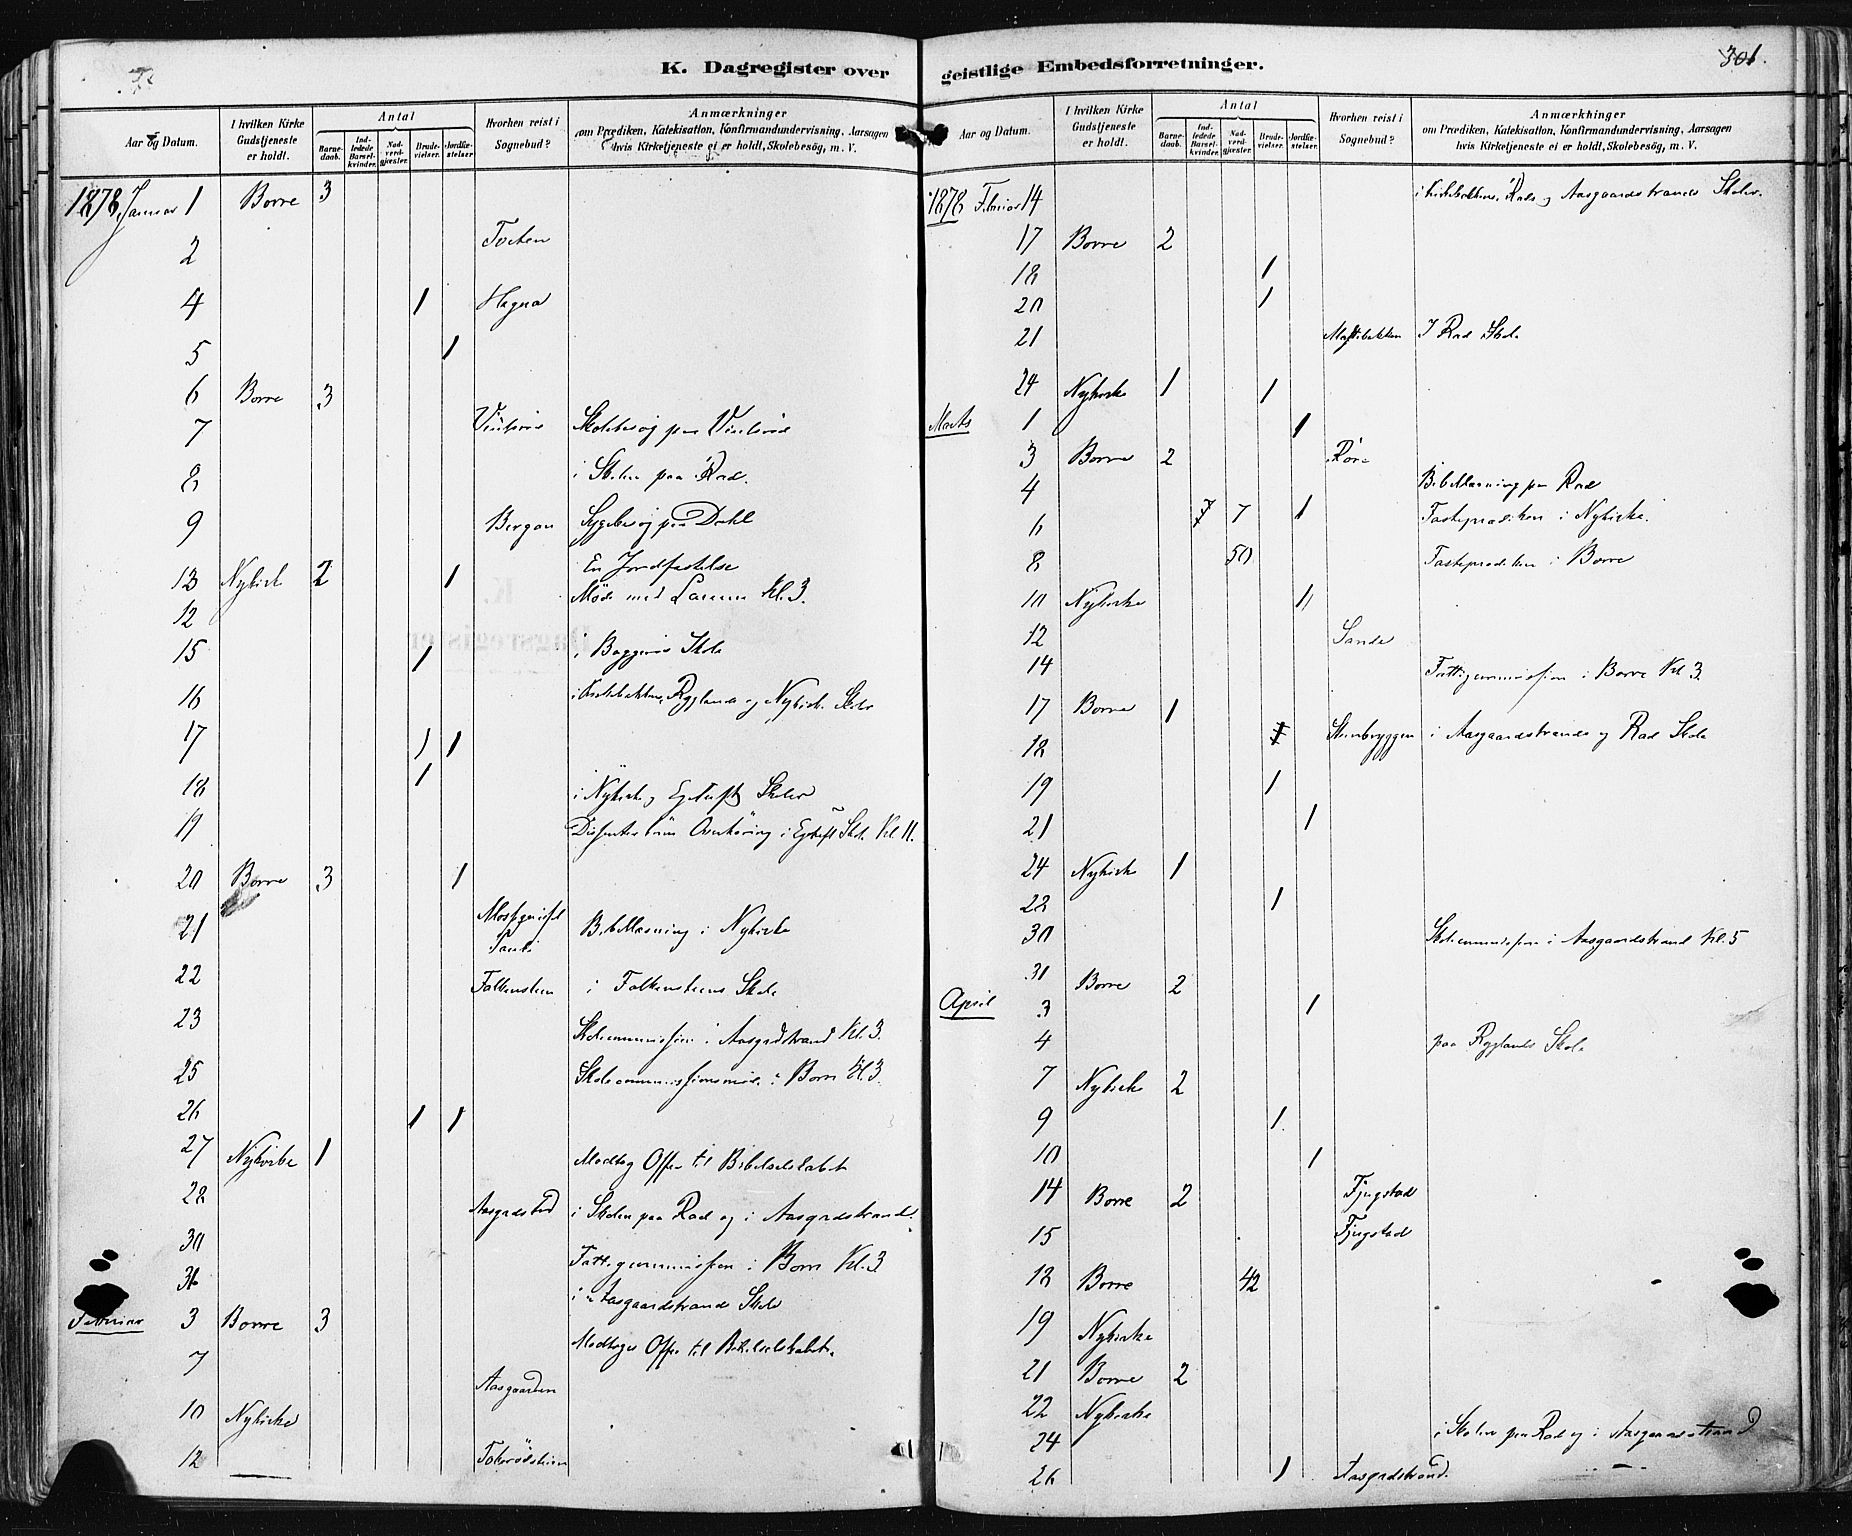 K. Dagregister over
Aar og Datum. | I hvilken Kirke Gudstjeneste er holdt. | Antal | Barnedaab. | Indledede Barselkvinder. | Nadverdgjæster. | Brudevielser. | Jordfæstelser | Hvorhen reist i Sognebud? | Anmærkninger om Prædiken, Katekisation, Konfirmandundervisning, Aarsagen hvis Kirketjeneste ei er holdt, Skolebesøg, m. V.
1878 Januar 1 Borre 3
2
4 1
5 1
6 Borre 3
7 Skolebesøg paa
8 i Skolen paa Rad.
9 Bergan Sygebesøg paa Dahl
13 Nykirke 2 1 En Jordfæstelse
12 Møde med Kl. 3.
15 1 i Skole
16 i Kirkebakkens, Ryglands og Nykirke Skoler
17 1 1
18 1 i Nykirke og Skoler
19 i Skole Kl. 11.
20 Borre 3 1
21 Bibellæsning i Nykirke
22 Falkensteen i Falkensteens Skole
23 Skolecommission i Aasgrdstrand Kl. 3.
25 Skolecommissionsmøde i Borre Kl. 3.
26 1 1
27 Nykirke 1 Modtog Offer til Bibelselskabet
28 i Skolen paa Rad og i Aasgrdstrand
30 Fattigcommission i Borre Kl. 3
31 i Aasgaardstrands Skole
Februar 3 Borre 3 Modtoges Offer til Bibelselskabet.
7 Aasgaarden
10 Nykirke
12
geistlige Embedsforretninger.
301.
Aar og Datum. | I hvilken Kirke Gudstjeneste er holdt. | Antal | Barnedaab. | Indledede Barselkvinder. | Nadverdgjæster. | Brudevielser. | Jordfæstelser | Hvorhen reist i Sognebud? | Anmærkninger om Prædiken, Katekisation, Konfirmandundervisning, Aarsagen hvis Kirketjeneste ei er holdt, Skolebesøg, m. V.
1878 Februar 14 i Kirkebakkens, Rads og Aasgaardstrands Skoler.
17 Borre 2
18 1
20 1
21 I Rad Skole
24 Nykirke 1 1
Marts 1 1
3 Borre 2
4 Bibellæsning paa Rad
6 7 1 Fasteprædiken i Nykirke.
8 50 Fasteprædiken i Borre
10 Nykirke
12 Sande
14 Fattigcommission i Borre Kl. 3.
17 Borre 1
18 Steenbryggen i Aasgaardstrands og Rad Skole
19 1
21 1
24 Nykirke 1
1
30 Skolecommission i Aasgaardstrand Kl. 5
31 Borre 2
April 3 1
4 paa Ryglands Skole
7 Nykirke 2
9 1
10 1
14 Borre 2 Fjugstad
15 Fjugstad
18 Borre 42
19 Nykirke
21 Borre 2
22 Nykirke
24 i Skolen paa Rad og i Aasgaardstrand
26 1 Aasgrdstrand.